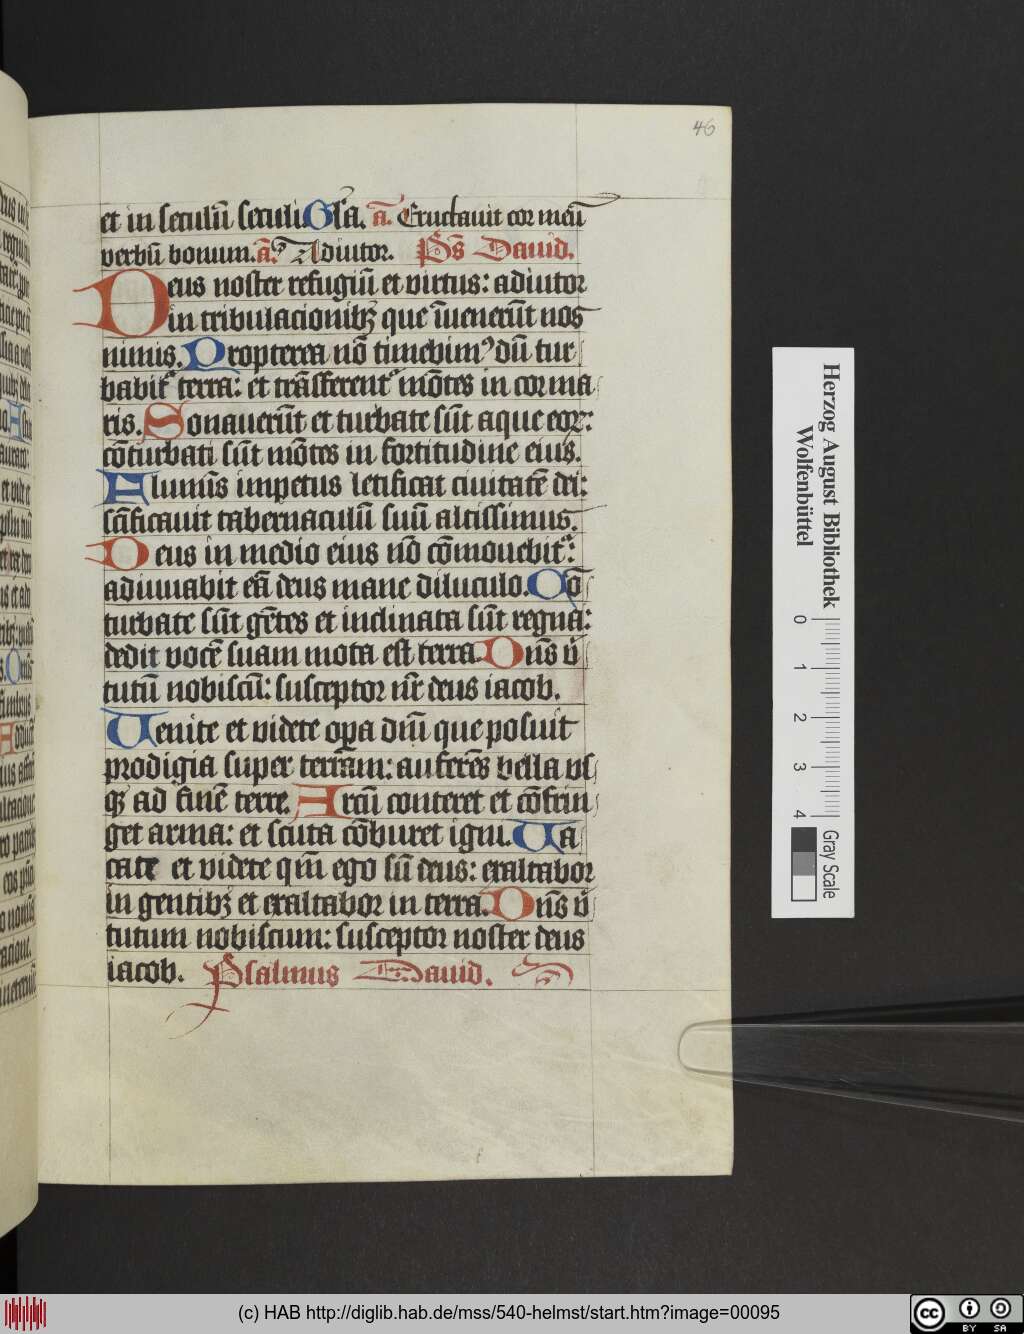 46
et in seculū seculi. Gľa. a̅. Eructauit cor meū
verbū bonum. a̅. Adiutor. Ps̄ Dauid.
Deus noster refugiū et virtus: adiutor
in tribulacionibꝫ que īuenerūt nos
nimis. Propterea nō timebimꝰ dū tur
babit᷑ terra: et trāsferent᷑ mōtes in cor ma
ris. Sonauerūt et turbate sūt aque eoꝝ:
cōturbati sūt mōtes in fortitudine eius.
Flumīs impetus letificat ciuitatē dei:
sc̄ificauit tabernaculū suū altissimus.
Deus in medio eius nō cōmouebit᷑:
adiuuabit eā deus mane diluculo. Cō
turbate sūt gētes et inclinata sūt regna:
dedit vocē suam mota est terra. Dn̄s v̾
tutū nobiscū: susceptor nr̄ deus iacob.
Uenite et videte oꝑa dn̄i que posuit
prodigia super terram: auferēs bella vs
qꝫ ad finē terre. Arcū conteret et cōfrin
get arma: et scuta cōburet igni. Ua
cate et videte qm̄ ego sū deus: exaltabor
in gentibꝫ et exaltabor in terra. Dn̄s v̾
tutum nobiscum: susceptor noster deus
iacob. Psalmus Dauid.
Herzog August Bibliothek
Wolfenbüttel
0 1 2 3 4
Gray Scale
(c) HAB http://diglib.hab.de/mss/540-helmst/start.htm?image=00095
cc BY SA